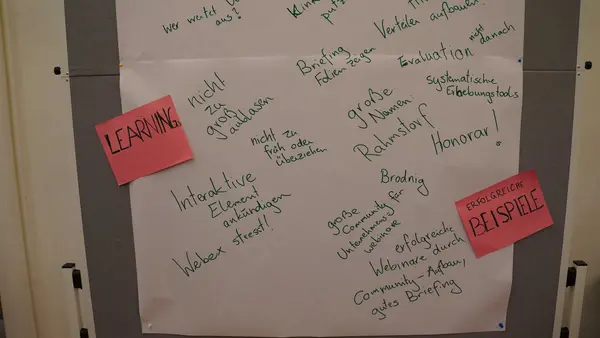 wer wertet
aus?
Verteiler aufbauen
nicht
danach
Briefing
Folien zeigen
Evaluation
systematische
Erhebungstools
LEARNINGS
nicht
zu
groß
aufblasen
nicht zu
früh oder
überziehen
große
Namen:
Rahmstorf
Honorar!
Interaktive
Element
ankündigen
Webex stresst!
Brodnig
große
Community für
Unternehmens-
webinare
ERFOLGREICHE
BEISPIELE
erfolgreiche
Webinare durch
Community-Aufbau,
gutes Briefing